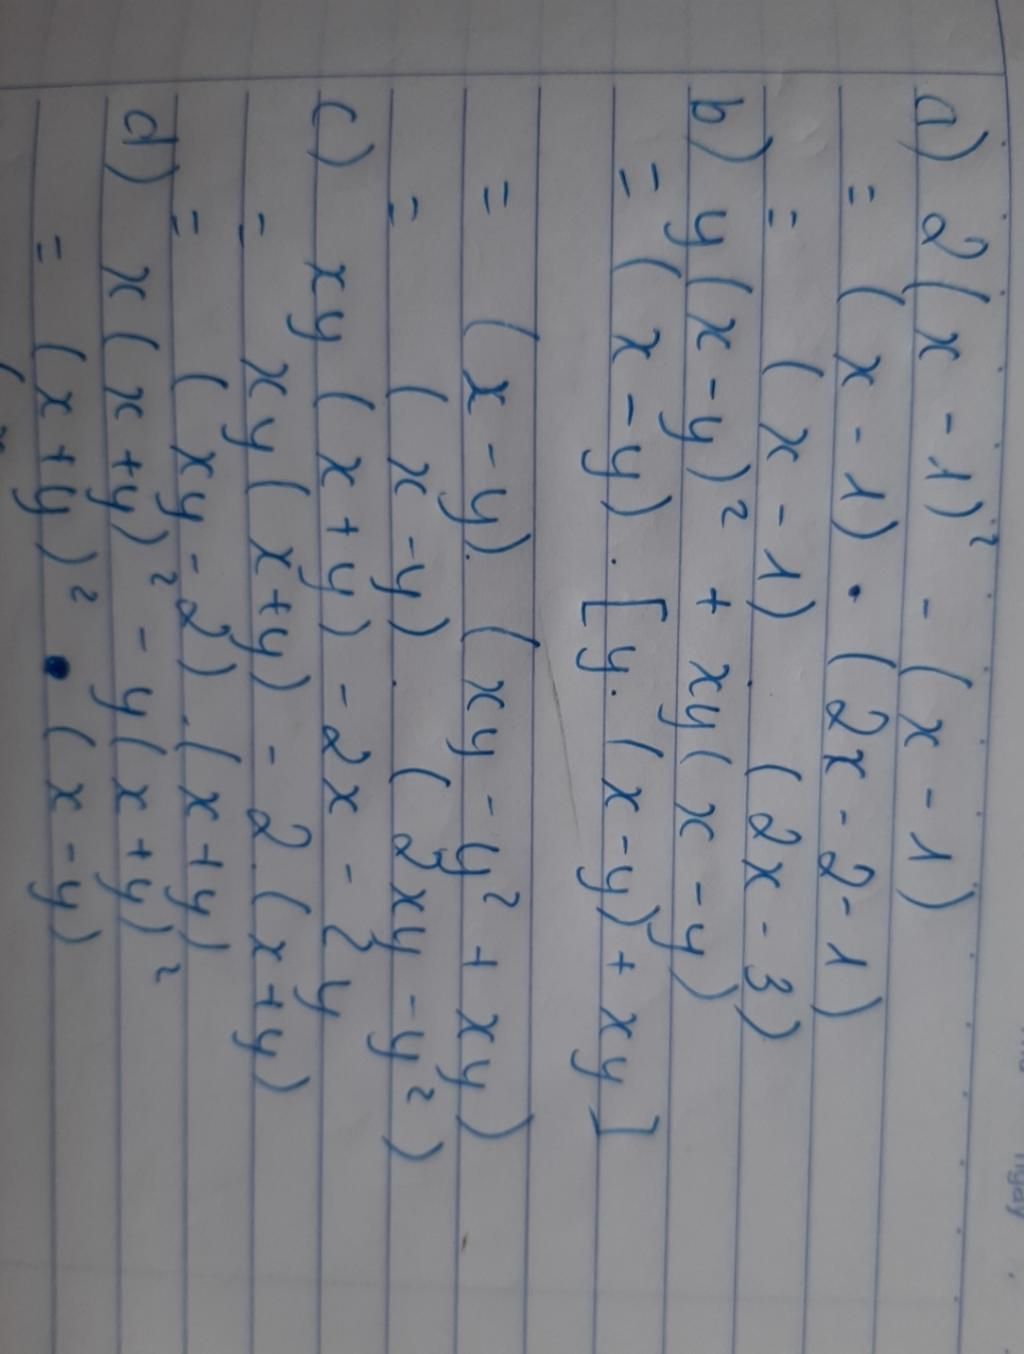 a) 2(x - 1)² - (x - 1)
= (x - 1) . (2x - 2 - 1)
= (x - 1) . (2x - 3)
b) y(x - y)² + xy(x - y)
= (x - y) . [y. (x - y) + xy]
= (x - y). (xy - y² + xy)
= (x - y) . (2xy - y²)
c) xy (x + y) - 2x - 2y
= xy(x + y) - 2.(x + y)
= (xy - 2).(x + y)
d) x(x + y)² - y(x + y)²
= (x + y)² . (x - y)